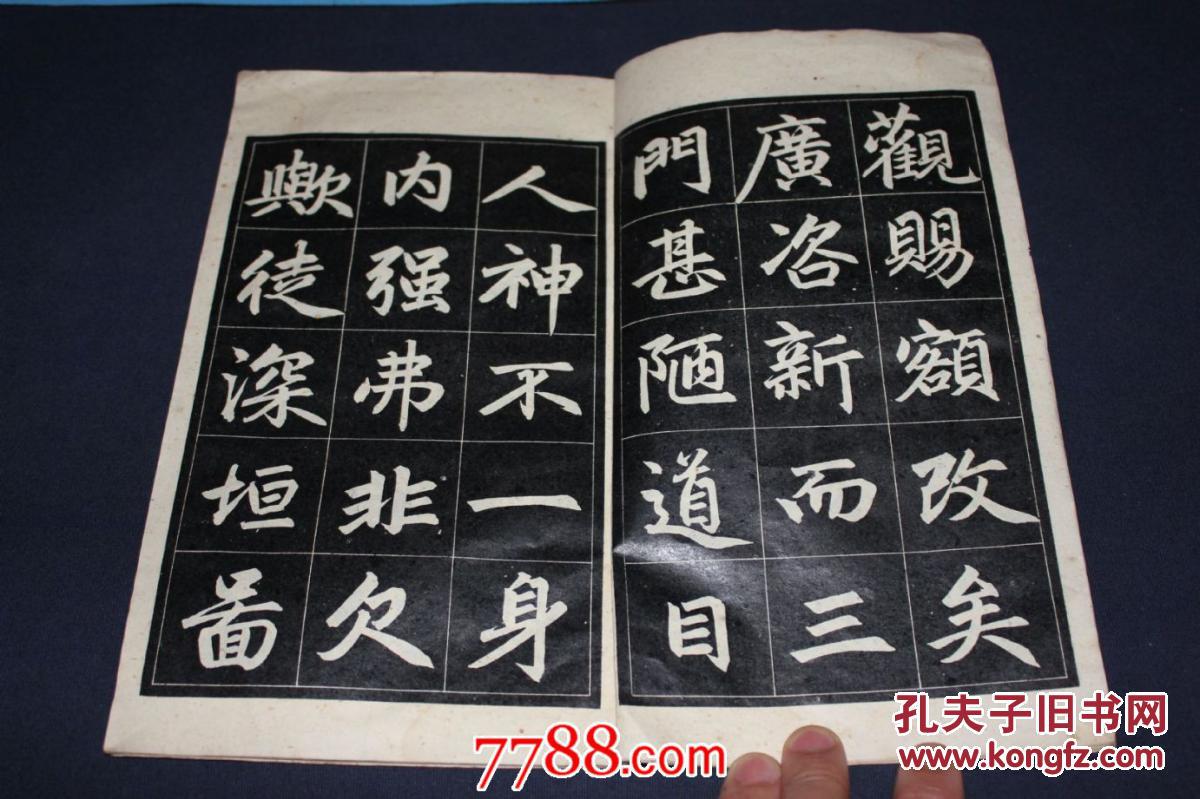 觀賜額改矣
廣咨新而三
門甚陋道目
人神不一身
内强弗非欠
歟徒深垣啚
7788.com
孔夫子旧书网
www.kongfz.com